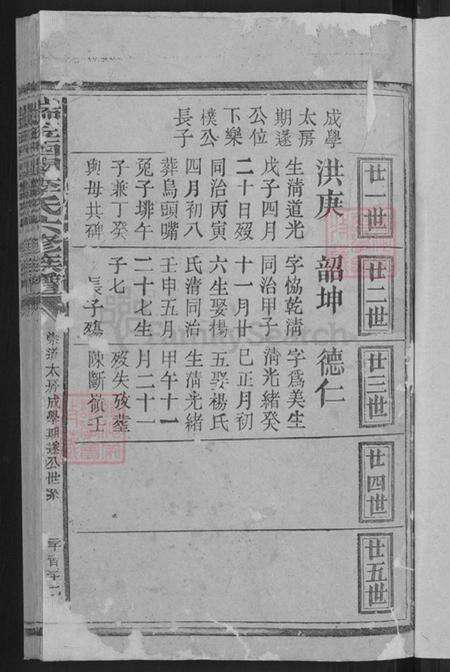 廿一世
廿二世
廿三世
廿四世
廿五世
成學
太房
期遂
公位
下樂
樸公
長子
洪庚
生清道光
戊子四月
二十日歿
同治丙寅
四月初八
葬烏頭嘴
兎子塀午
子兼丁癸
與母共碑
韶坤
字恊乾清
同治甲子
十一月廿
六生娶楊
氏清同治
壬申五月
二十七生
子七
長子殤
德仁
字爲美生
清光緒癸
巳正月初
五娶楊氏
生清光緒
甲午十一
月二十一
歿失攷葬
陳斷嶺王
氏六修族譜
崇道太房成學期遂公世系